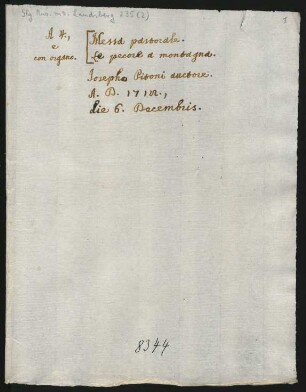 Slg Mus. ms. Landsberg 235 (2)
1
A 4, Messa pastorale.
e Le pecore a montagna.
con organo.
Josepho Pitoni auctore.
A. D. 1712,
die 6. Decembris.
8344